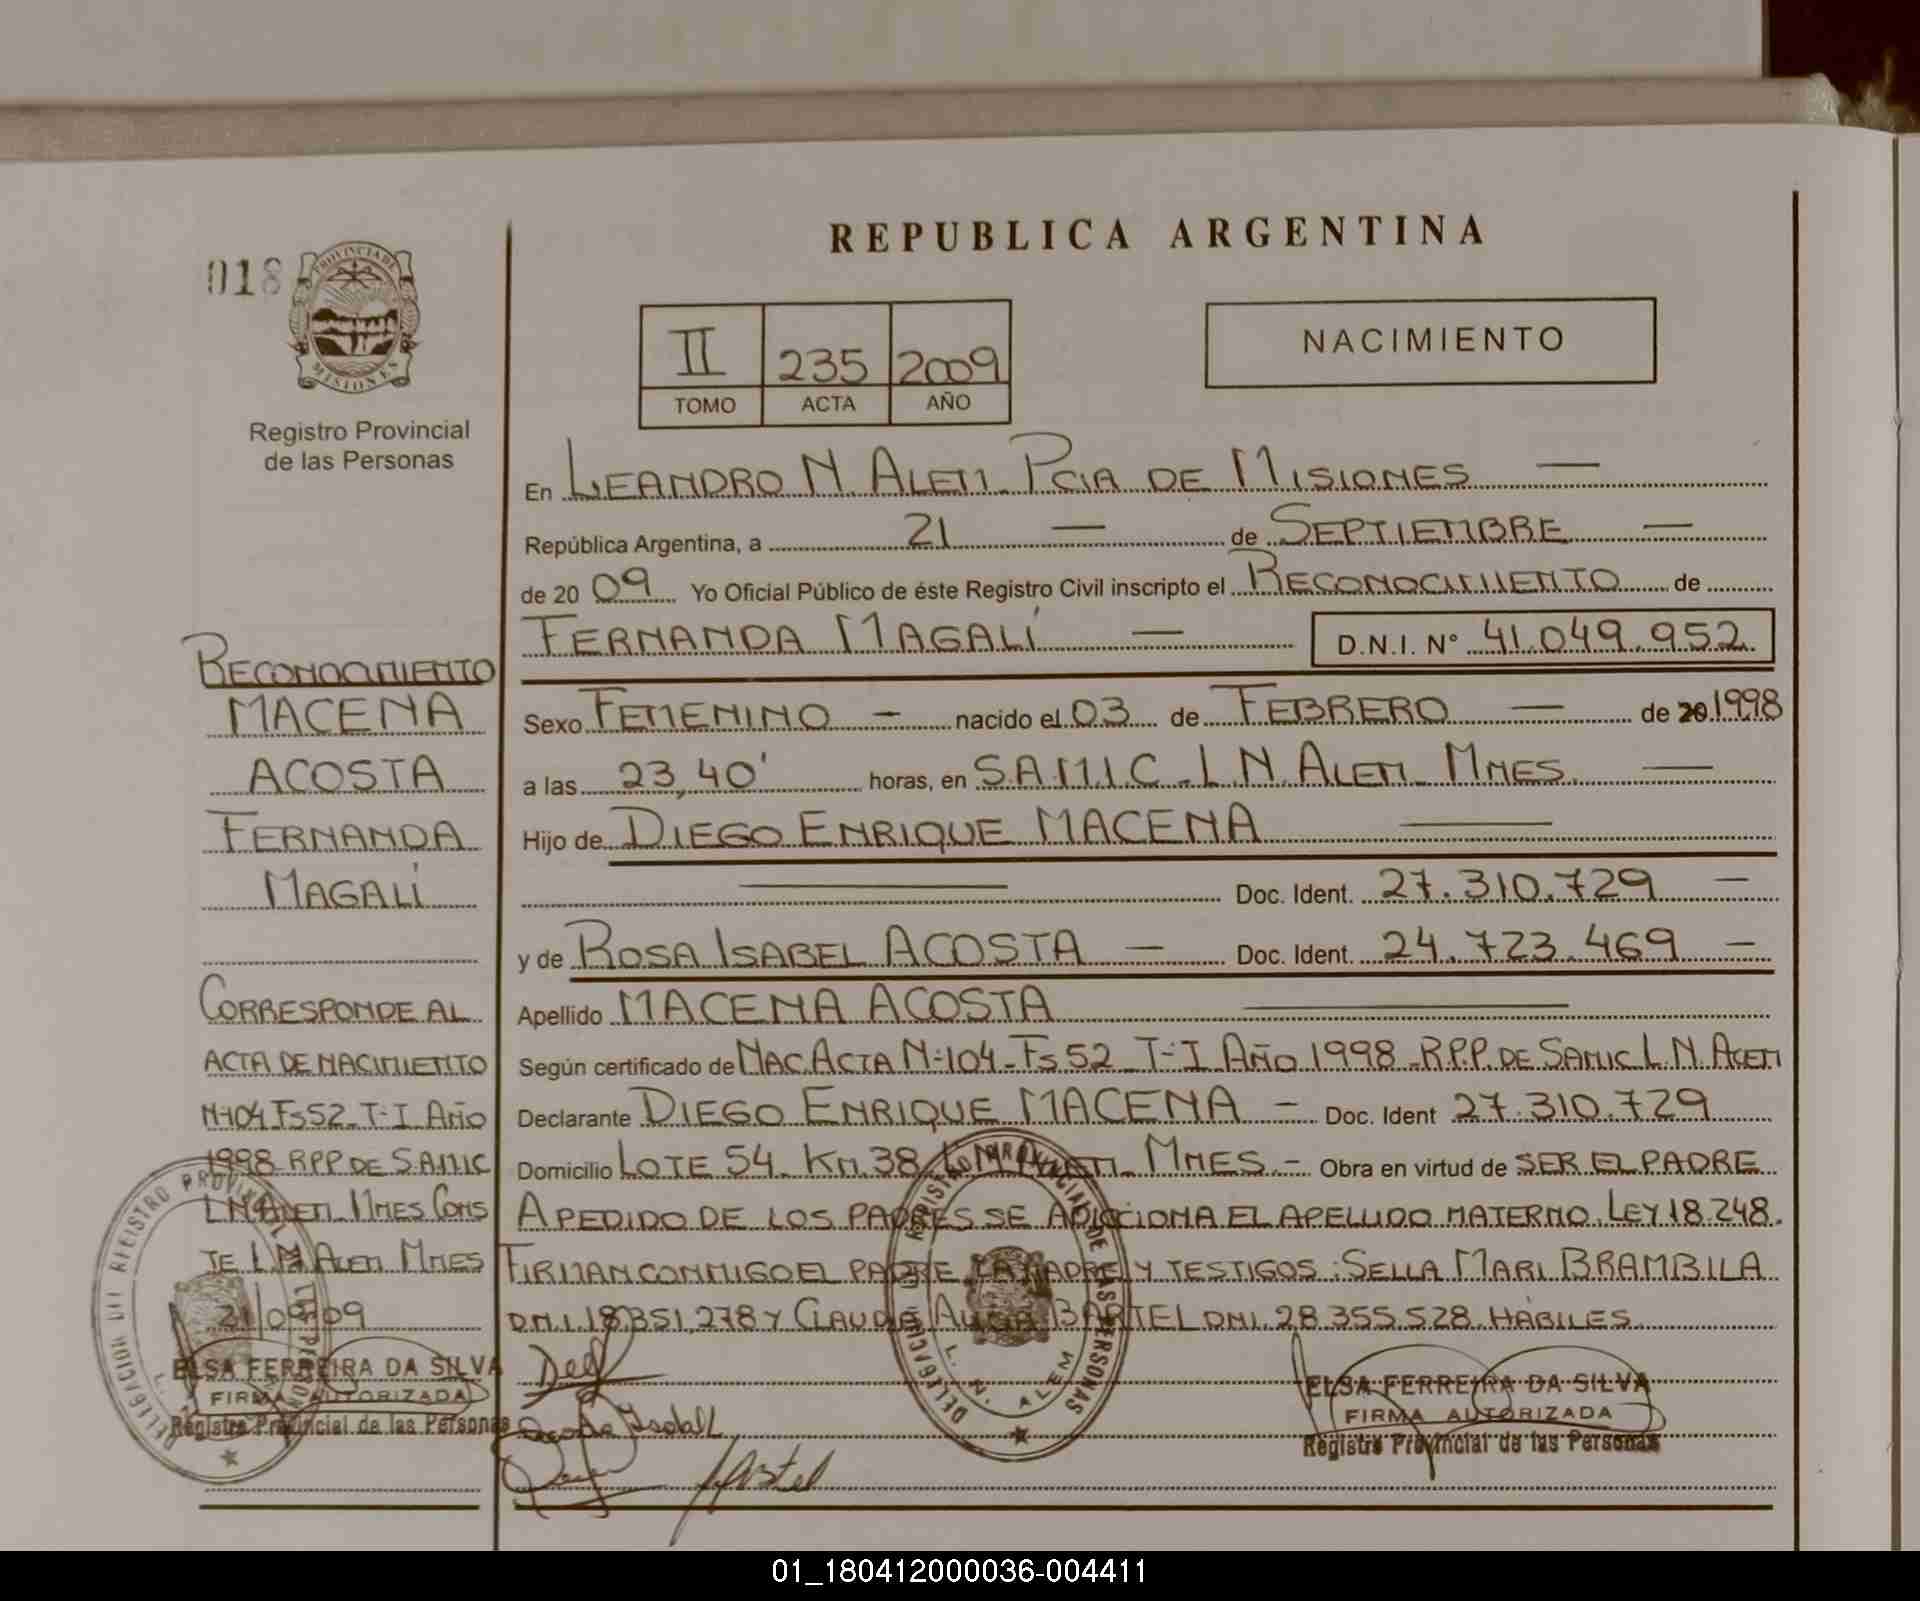 REPUBLICA ARGENTINA
018
PROVINCIA DE
MISIONES
Registro Provincial
de las Personas
II 235 2009
TOMO ACTA AÑO
NACIMIENTO
En LEANDRO N. ALEM. PCIA DE MISIONES —
República Argentina, a 21 — de SEPTIEMBRE —
de 2009 Yo Oficial Público de éste Registro Civil inscripto el RECONOCIMIENTO de
FERNANDA MAGALÍ — D.N.I. Nº 41.049.952
Sexo FEMENINO - nacido el 03 de FEBRERO — de 20 1998
a las 23,40' horas, en S.A.M.I.C. L.N. ALEM. MNES. —
Hijo de DIEGO ENRIQUE MACENA —
— Doc. Ident. 27.310.729 —
y de ROSA ISABEL ACOSTA — Doc. Ident. 24.723.469 —
Apellido MACENA ACOSTA —
Según certificado de NAC. ACTA Nº104 - Fs 52 - T-I AÑO 1998 - R.P.P. DE SAMIC L.N. ALEM
Declarante DIEGO ENRIQUE MACENA - Doc. Ident 27.310.729
Domicilio LOTE 54. KM. 38. L.N. ALEM. MNES - Obra en virtud de SER EL PADRE
A PEDIDO DE LOS PADRES SE ADICIONA EL APELLIDO MATERNO. LEY 18.248.
FIRMAN CONMIGO EL PADRE, LA MADRE Y TESTIGOS: SELLA MARI BRAMBILA
D.N.I. 18.351.278 Y CLAUDIA ALICIA BARTEL DNI. 28.355.528. HÁBILES.
RECONOCIMIENTO
MACENA
ACOSTA
FERNANDA
MAGALÍ
CORRESPONDE AL
ACTA DE NACIMIENTO
Nº104 Fs 52 - T-I AÑO
1998 RPP DE SAMIC
L.N. ALEM MNES CONS
TE L.N. ALEM MNES
21/09/09
ELSA FERREIRA DA SILVA
FIRMA AUTORIZADA
Registro Provincial de las Personas
DELEGACION DEL REGISTRO PROVINCIAL DE LAS PERSONAS
L. N. ALEM
Acosta Isabel
Bartel
ELSA FERREIRA DA SILVA
FIRMA AUTORIZADA
Registro Provincial de las Personas
01_180412000036-004411